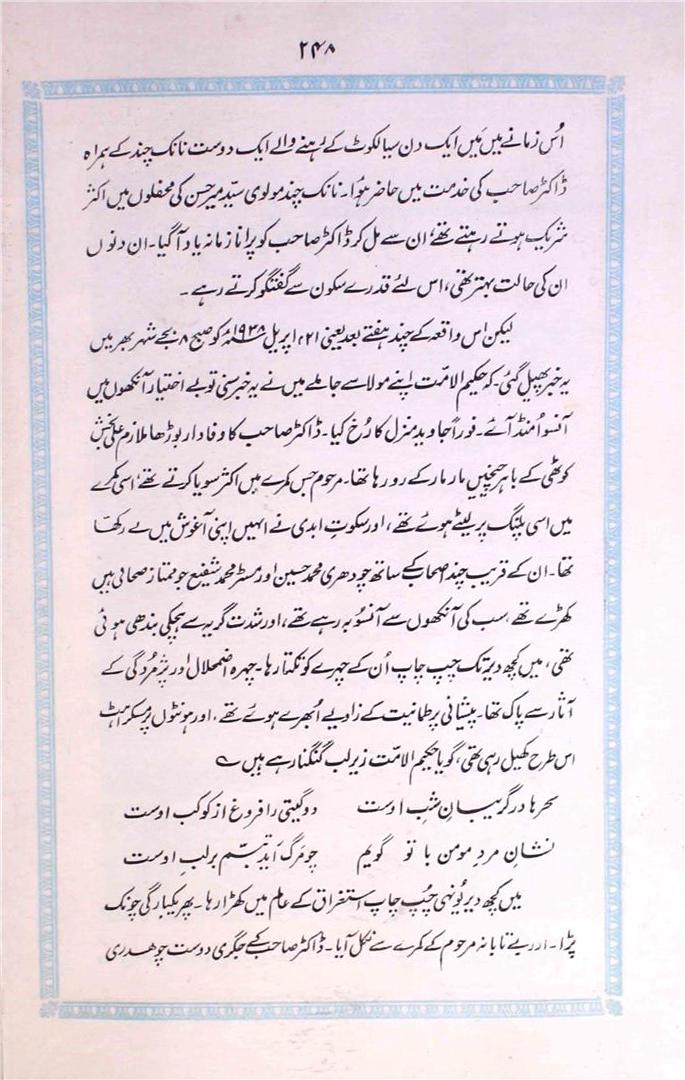 ۲۴۸
اُس زمانے میں مَیں ایک دن سیالکوٹ کے رہنے والے ایک دوست نانک چند کے ہمراہ
ڈاکٹر صاحب کی خدمت میں حاضر ہُوا۔ نانک چند مولوی سیّد میر حسن کی محفلوں میں اکثر
شریک ہوتے رہتے تھے، ان سے مل کر ڈاکٹر صاحب کو پرانا زمانہ یاد آ گیا۔ ان دنوں
ان کی حالت بہتر تھی، اس لئے قدرے سکون سے گفتگو کرتے رہے۔
لیکن اس واقعہ کے چند ہفتے بعد یعنی ۲۱؍ اپریل ۱۹۳۸ء کو صبح ۸ بجے شہر بھر میں
یہ خبر پھیل گئی۔ کہ حکیم الامّت اپنے مولا سے جا ملے میں نے یہ خبر سنی تو بے اختیار آنکھوں میں
آنسو اُمنڈ آئے۔ فوراً جاوید منزل کا رُخ کیا۔ ڈاکٹر صاحب کا وفادار بوڑھا ملازم علی بخش
کوٹھی کے باہر چیخیں مار مار کے رو رہا تھا۔ مرحوم جس کمرے میں اکثر سویا کرتے تھے، اسی کمرے
میں اسی پلنگ پر لیٹے ہوئے تھے، اور سکوتِ ابدی نے انہیں اپنی آغوش میں لے رکھا
تھا۔ ان کے قریب چند اصحاب کے ساتھ چودھری محمد حسین اور مسٹر محمد شفیع جو ممتاز صحافی ہیں
کھڑے تھے، سب کی آنکھوں سے آنسو بہ رہے تھے، اور شدت گریہ سے ہچکی بندھی ہوئی
تھی، میں کچھ دیر تک چپ چاپ اُن کے چہرے کو تکتا رہا۔ چہرہ اضمحلال اور پژمُردگی کے
آثار سے پاک تھا۔ پیشانی پر طمانیت کے زاویے اُبھرے ہوئے تھے، اور ہونٹوں پر مسکراہٹ
اس طرح کھیل رہی تھی، گویا حکیم الامّت زیر لب گنگنا رہے ہیں ؎
سحرہا در گریبانِ شبِ اوست دو گیتی را فروغ از کوکبِ اوست
نشانِ مردِ مومن با تو گویم چو مرگ آید تبسّم برلبِ اوست
میں کچھ دیر یُونہی چُپ چاپ استغراق کے عالم میں کھڑا رہا۔ پھر یکبارگی چونک
پڑا۔ اور بے تابانہ مرحوم کے کمرے سے نکل آیا۔ ڈاکٹر صاحب کے جگری دوست چوھدری